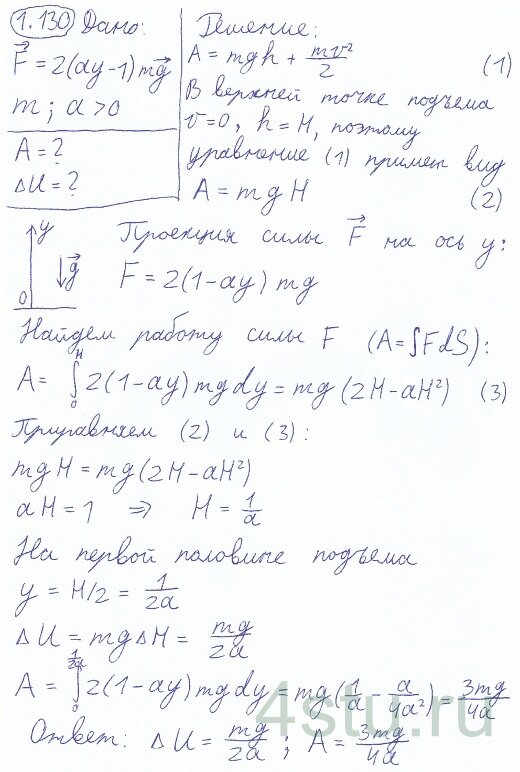 1.130 Дано:
F⃗ = 2(ay-1)mg⃗
m; a>0
A = ?
ΔU = ?
Решение:
A = mgh + mv²/2 (1)
В верхней точке подъема
v=0, h=H, поэтому
уравнение (1) примет вид
A = mgH (2)
y
g⃗
0
Проекция силы F⃗ на ось y:
F = 2(1-ay)mg
Найдем работу силы F (A=∫FdS):
A = ∫₀ᴴ 2(1-ay)mgdy = mg(2H-aH²) (3)
Приравняем (2) и (3):
mgH = mg(2H-aH²)
aH = 1 ⇒ H = 1/a
На первой половине подъема
y = H/2 = 1/2a
ΔU = mgΔH = mg/2a
A = ∫₀^(1/2a) 2(1-ay)mgdy = mg(1/a - a/4a²) = 3mg/4a
Ответ: ΔU = mg/2a; A = 3mg/4a
4stu.ru